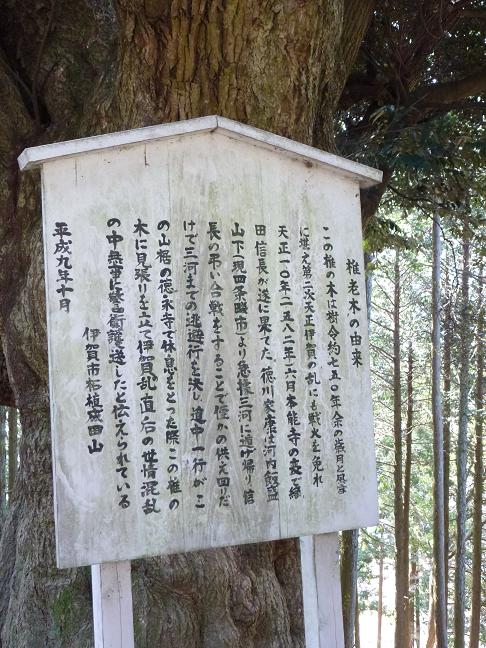 椎老木の由来
この椎の木は樹令約七五〇年余の歳月と風雪
に堪え第二次天正伊賀の乱にも戦火を免れ
天正一〇年一五八二年六月本能寺の変で織
田信長が遂に果てた、徳川家康は河内飯盛
山下（現四条畷市）より急據三河に逃げ帰り信
長の弔い合戦をすることで僅かの供え回りだ
けで三河までの逃避行を決し道中一行がこ
の山裾の徳永寺で休息をとった際この椎の
木に見張りを立て伊賀乱直后の世情混乱
の中無事に警固術護送したと伝えられている
伊賀市柘植
平成九年十月